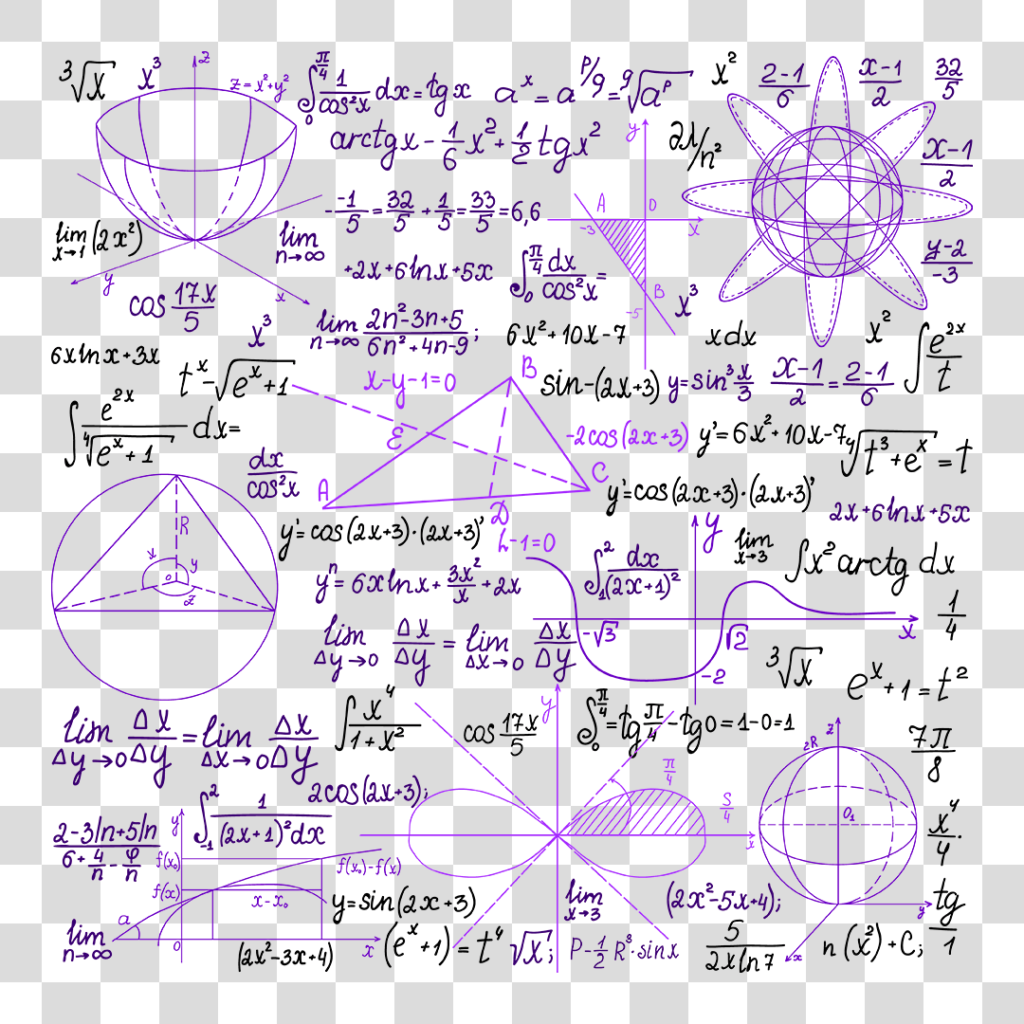 ∛x
x³
z
z=x²+y²
∫₀^(π/4) 1/cos²x dx = tg x
aˣ = a^(p/q) = ^q√(aᵖ)
x²
2-1/6
x-1/2
32/5
arctgx - 1/6 x² + 1/2 tgx²
y
2λ/n²
x-1/2
A
0
-3
x
- -1/5 = 32/5 + 1/5 = 33/5 = 6,6
lim x→1 (2x²)
lim n→∞
+2x+6lnx+5x
∫₀^(π/4) dx/cos²x =
y-2/-3
y
x
B
-5
x³
cos 17x/5
x³
lim n→∞ 2n²-3n+5/6n²+4n-9;
6x²+10x-7
xdx
x²
∫ e²ˣ/t
6xlnx+3x
tˣ-√(eˣ+1)
x-y-1=0
B
sin-(2x+3)
y=sin³ x/3
x-1/2 = 2-1/6
∫ e²ˣ/⁴√(eˣ+1) dx=
E
-2cos(2x+3)
y'=6x²+10x-7
⁴√(t³+eˣ) = t
dx/cos²x
A
C
D
y'=cos(2x+3)·(2x+3)'
2x+6lnx+5x
R
x
y
o
z
y'=cos(2x+3)·(2x+3)'
h-1=0
y
lim x→3
∫x² arctg dx
yⁿ=6xlnx+ 3x²/x +2x
∫₁² dx/(2x+1)²
1/4
lim Δy→0 Δx/Δy = lim Δx→0 Δx/Δy
-√3
√2
x
-2
∛x
eˣ+1=t²
lim Δy→0 Δx/Δy = lim Δx→0 Δx/Δy
∫ x⁴/1+x²
cos 17x/5
y
∫₀^(π/4) = tg π/4 - tg0=1-0=1
2R
z
7π/8
π/4
2cos(2x+3);
S/4
x
O₁
x⁴/4.
2-3ln+5ln/6+ 4/n - φ/n
∫₁² 1/(2x+1)²dx
y
f(x₀)
f(x₀)-f(x)
f(x)
x-x₀
a
0
x
y=sin(2x+3)
lim x→3
(2x²-5x+4);
y
tg/1
lim n→∞
(2x²-3x+4)
(eˣ+1)=t⁴
√x;
P-1/2 R³·sinx
5/2xln7
x
n(x²)+C;